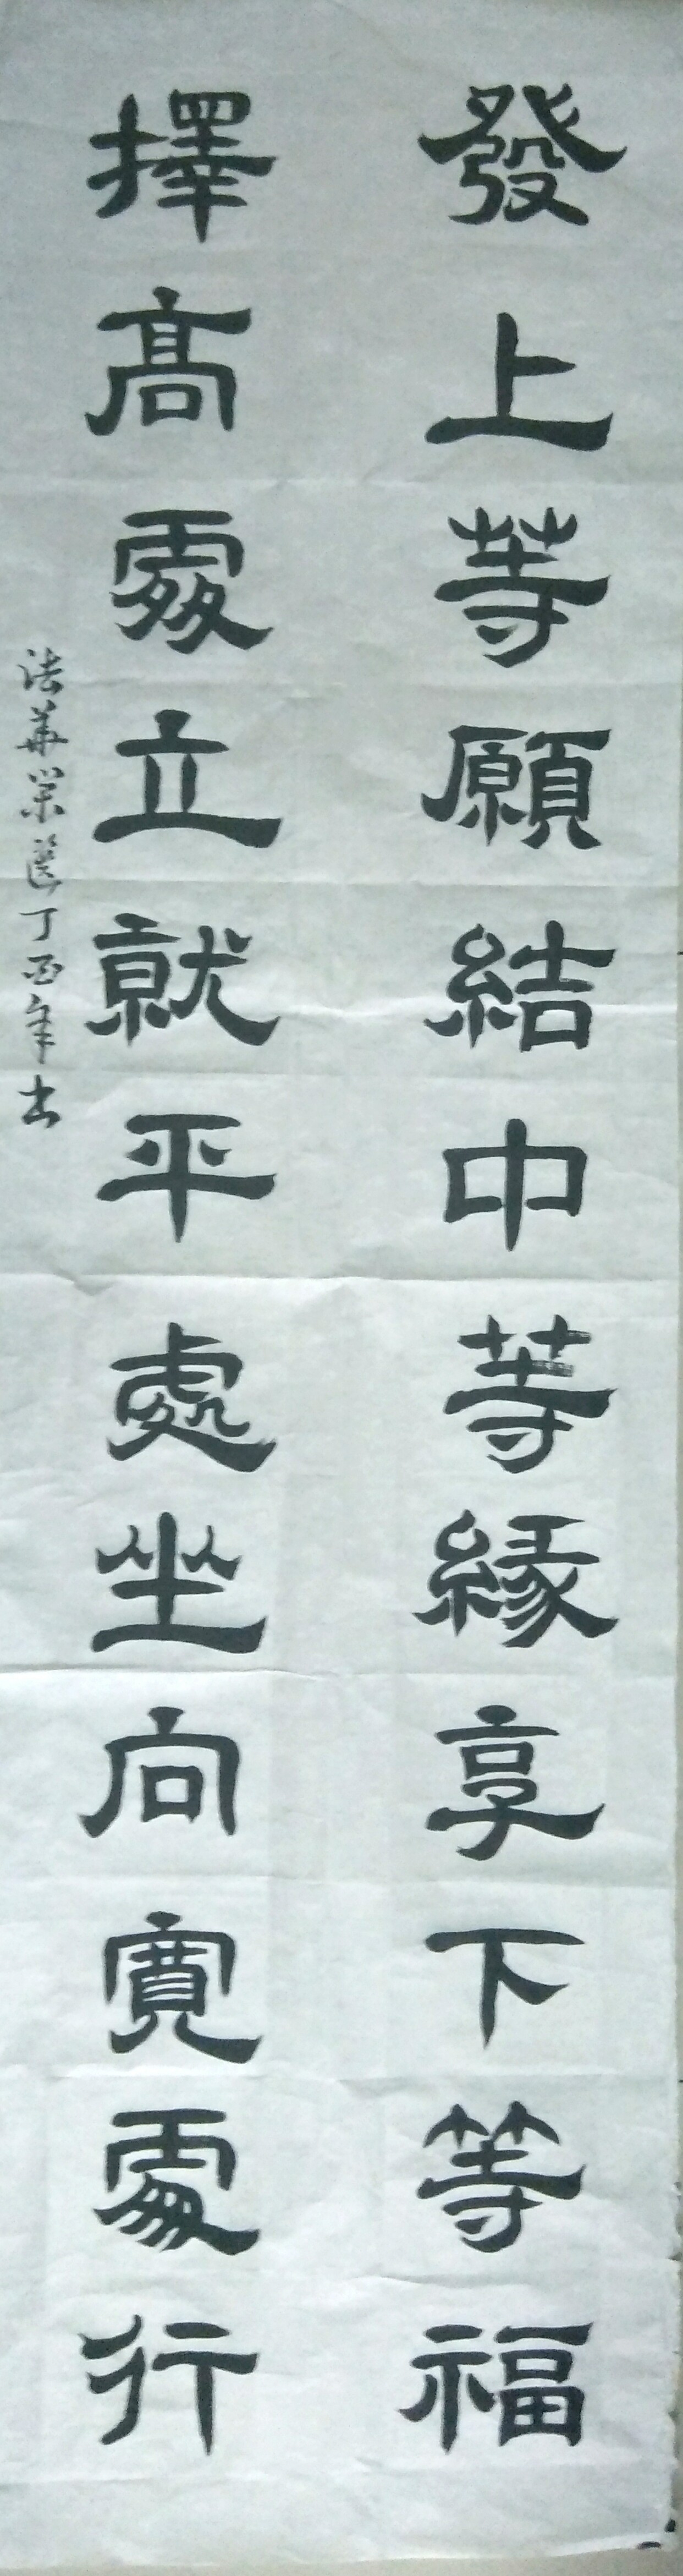 發上等願結中等緣享下等福
擇高處立就平處坐向寬處行
法華 丁酉年书